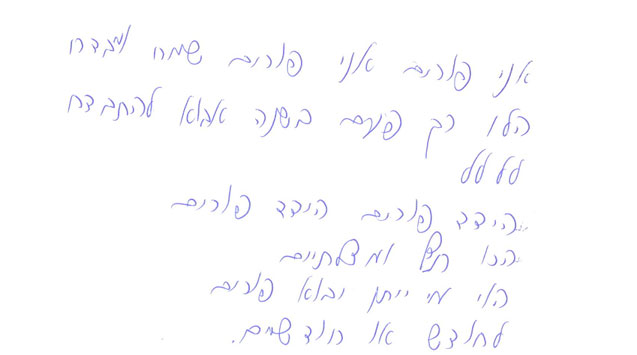 אני פורים אני פורים שמח ומבדח
הלו רק פעם בשנה אבוא להתבדח
לללל
הידד פורים הידד פורים
הכו תף ומצלתיים
הוי מי ייתן ובוא פורים
לחודש או חודשיים.